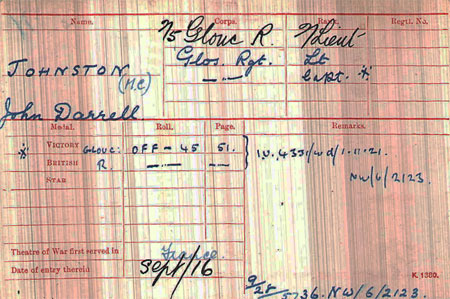 Name. Corps. Rank. Regtl. No.
7/5 Glouc R. T/Lieut
JOHNSTON Glos. Rgt. Lt
(M.C) — „ — Capt. *
John Darrell
Medal. Roll. Page. Remarks.
* VICTORY GLOUC: OFF – 45 51. I.V.4331/wd/1.11.21.
BRITISH R. — „ — — „ — NW/6/2123.
STAR
Theatre of War first served in France
Date of entry therein Sept/16 K. 1380.
5736. NW/6/2123.